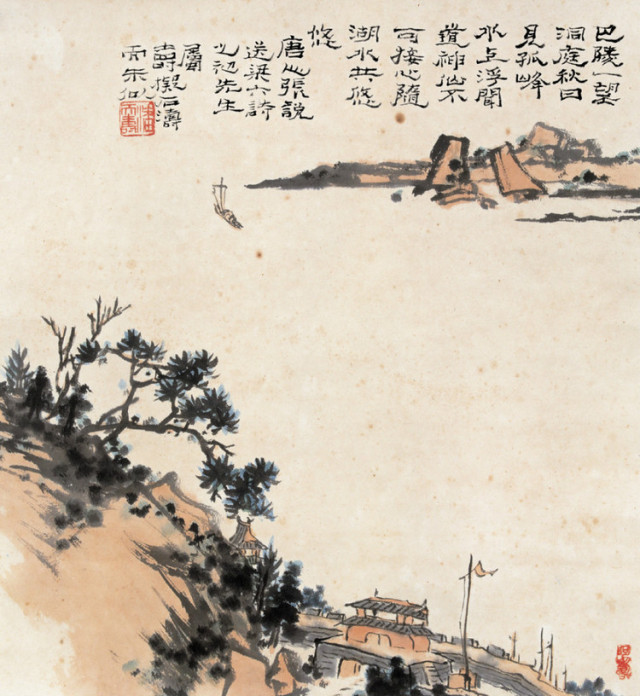 巴陵一望
洞庭秋日
見孤峰
水上浮聞
道神仙不
可接心隨
湖水共悠
悠
唐人張說
送梁六詩
初先生
屬
壽擬石濤
而未似